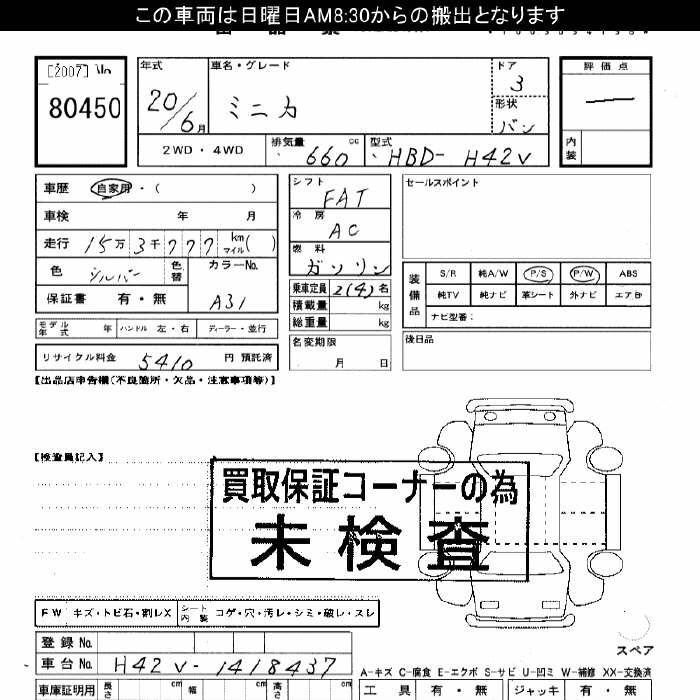 この車両は日曜日AM8:30からの搬出となります
[2007] No
80450
年式 20/6月
車名・グレード ミニカ
ドア 3
形状 バン
評価点 —
内装
2WD・4WD
排気量 660 cc
型式 HBD- H42V
車歴 自家用・( )
車検 年 月
走行 15万 3千 7 7 7 km マイル( )
色 シルバー 色替
カラーNo. A31
保証書 有・無
モデル年式 年 ハンドル 左・右 ディーラー・並行
リサイクル料金 5410 円 預託済
シフト FAT
冷房 AC
燃料 ガソリン
乗車定員 2(4) 名
積載量 kg
総重量 kg
名変期限 月 日
セールスポイント
装備品
S/R 純A/W P/S P/W ABS
純TV 純ナビ 革シート 外ナビ エアB
ナビ型番:
後日品
【出品店申告欄(不良箇所・欠品・注意事項等)】
【検査員記入】
買取保証コーナーの為
未検査
FW キズ・トビ石・割レX
シート内装 コゲ・穴・汚レ・シミ・破レ・スレ
スペア
登録No.
車台No. H42V-1418437
A-キズ C-腐食 E-エクボ S-サビ U-凹ミ W-補修 XX-交換済
車庫証明用 長さ cm 幅 cm 高さ cm
工具 有・無 ジャッキ 有・無